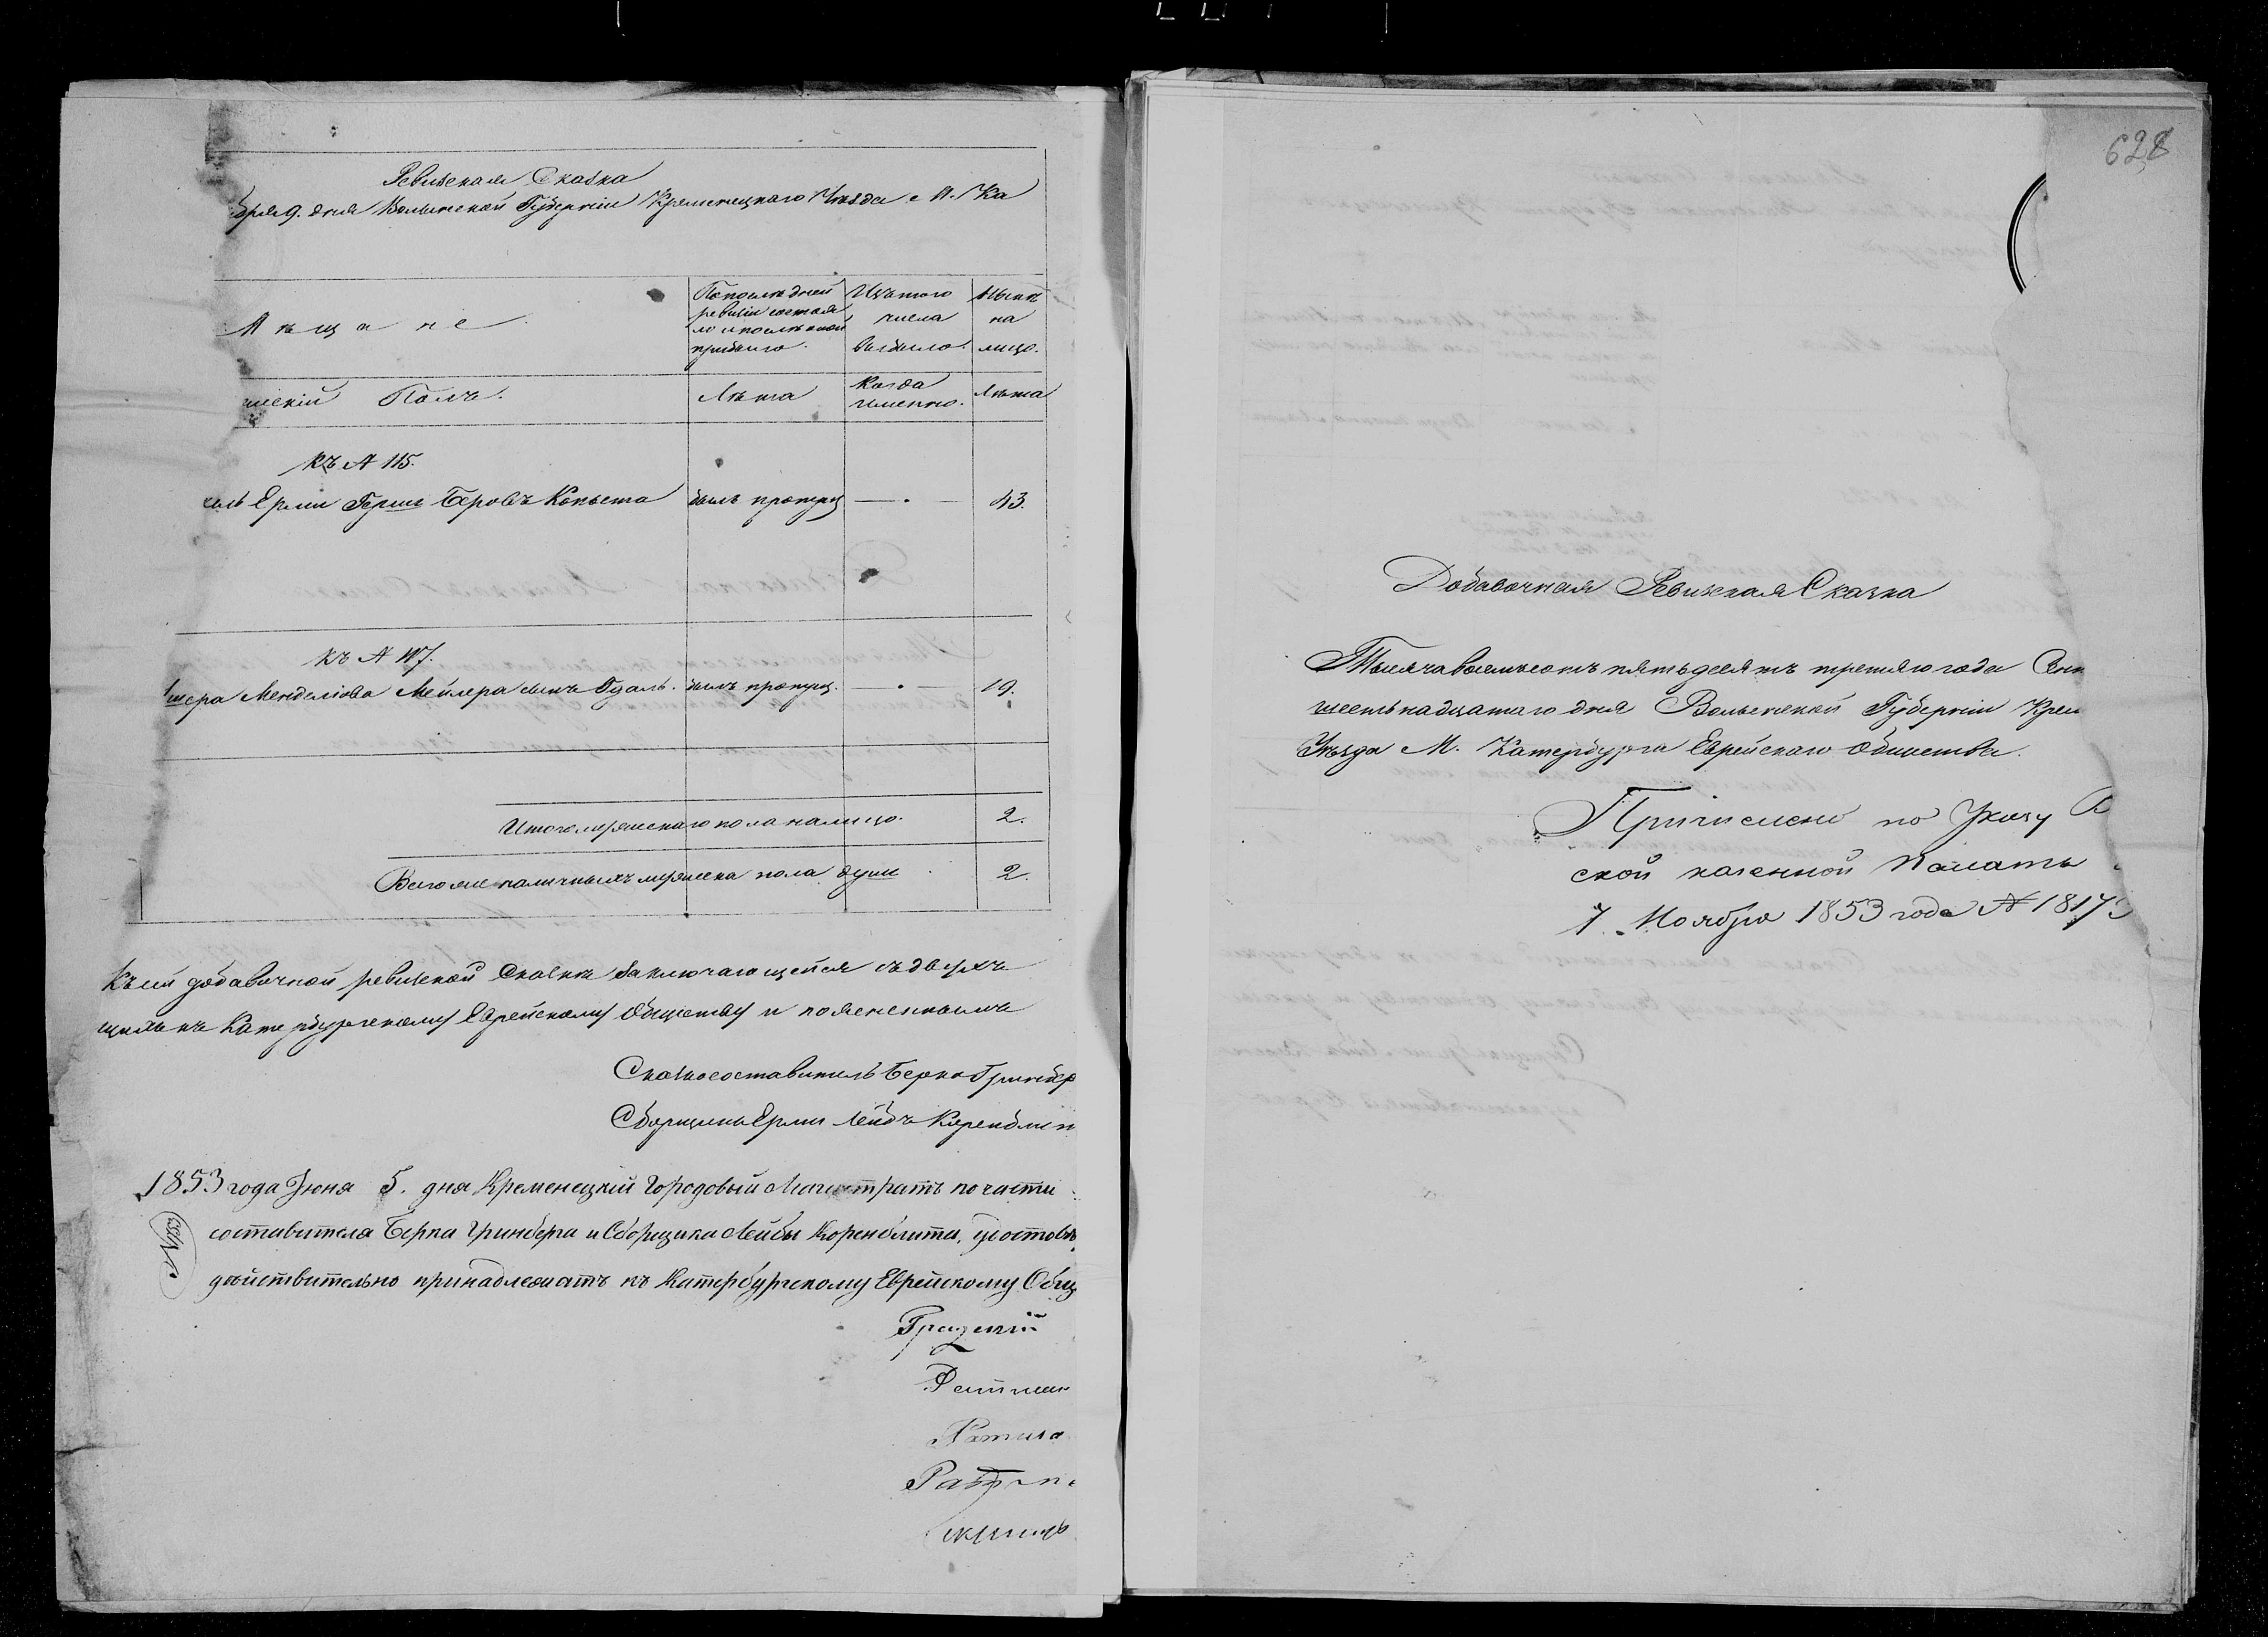 Ревизская Сказка
бря 9. дня Волынской Губерніи Кременецкаго Уѣзда М. Ка
Мѣщане
По послѣдней ревизіи состояло и послѣ оной прибыло.
Изъ того числа выбыло.
Нынѣ на лицо.
жескій Полъ.
Лѣта
Когда именно.
Лѣта
къ № 115.
Ерми Герш Беровъ был пропущ — . — 43.
къ № 117.
Менделіова Мейлера сынъ был пропущ. — . — 19.
Итого мужескаго пола на лицо. 2.
Всего же наличныхъ мужеска пола душ 2.
Къ сей добавочной ревизской Сказкѣ заключающейся въ двухъ
къ Катербургскому Еврейскому Обществу и поясненнымъ
Сказкосоставитель Берко Гринбер
Сборщикъ Лейбъ Коренблит
1853 года Іюня 5. дня Кременецкій Городовый Магистратъ по части
составителя Берка Гринбера и Сборщика Лейбы Коренблита, удостовѣ
дѣйствительно принадлежатъ къ Катербургскому Еврейскому Общ
628
Добавочная Ревизская Сказка
Тысяча восемьсотъ пятьдесятъ третяго года
шестьнадцатаго дня Волынской Губерніи Крем
Уѣзда М. Катербурга Еврейскаго Общества.
Причислено по Указу
ской казенной Палаты
7. Ноября 1853 года № 1817